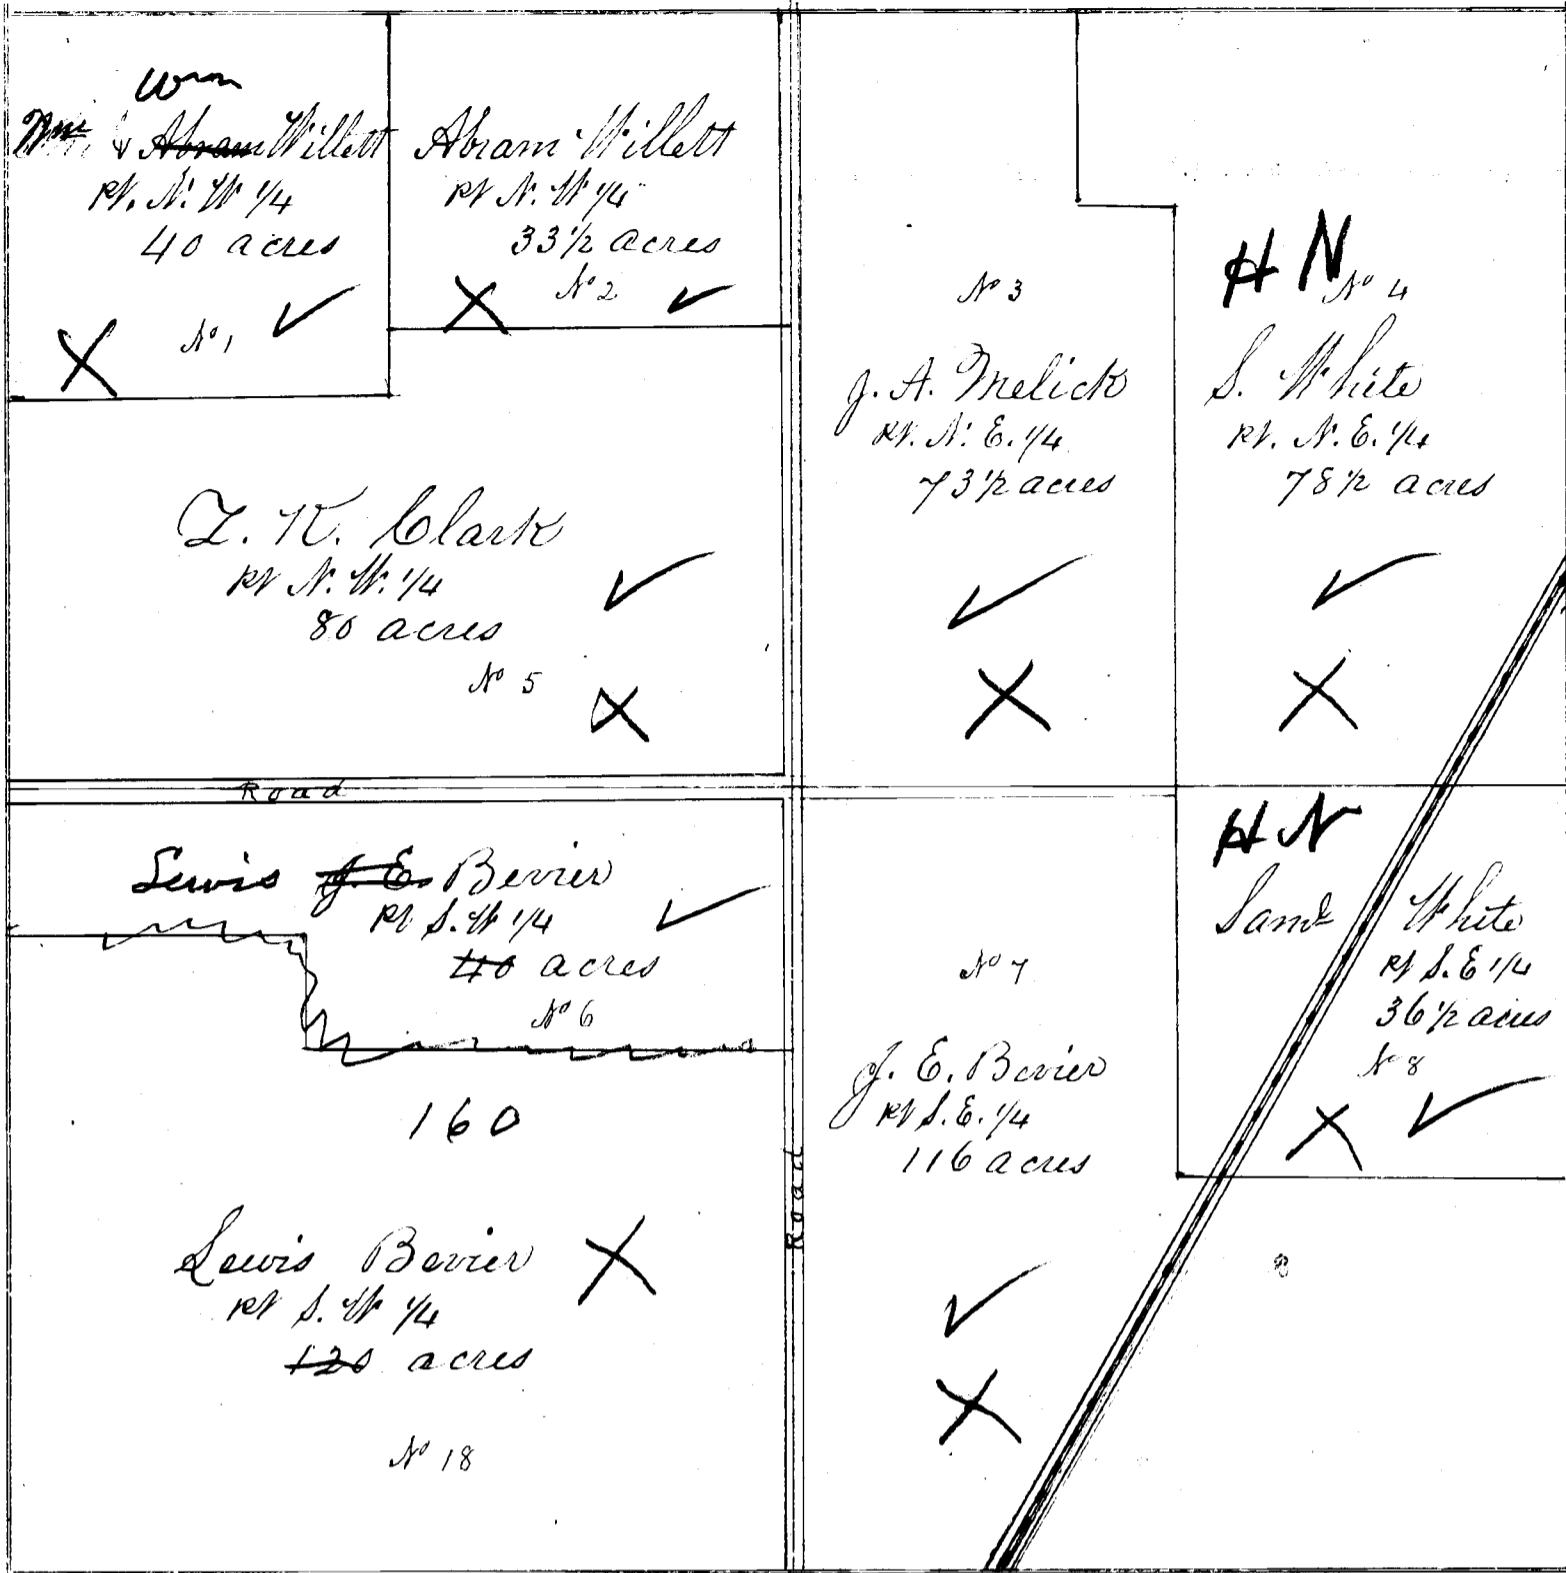 Wm
Wm & Abram Willett
Pt. N. W 1/4
40 acres
No 1
Abram Willett
Pt N. W 1/4
33 1/2 acres
No 2
No 3
J. A. Melick
Pt. N. E. 1/4
73 1/2 acres
H N
No 4
S. White
Pt. N. E. 1/4
78 1/2 acres
Z. K. Clark
Pt N. W. 1/4
80 acres
No 5
Road
Lewis J. E. Bevier
Pt S. W 1/4
40 acres
No 6
160
Lewis Bevier
Pt S. W 1/4
120 acres
No 18
Road
No 7
J. E. Bevier
Pt S. E. 1/4
116 acres
H N
Saml White
Pt S. E 1/4
36 1/2 acres
No 8
8